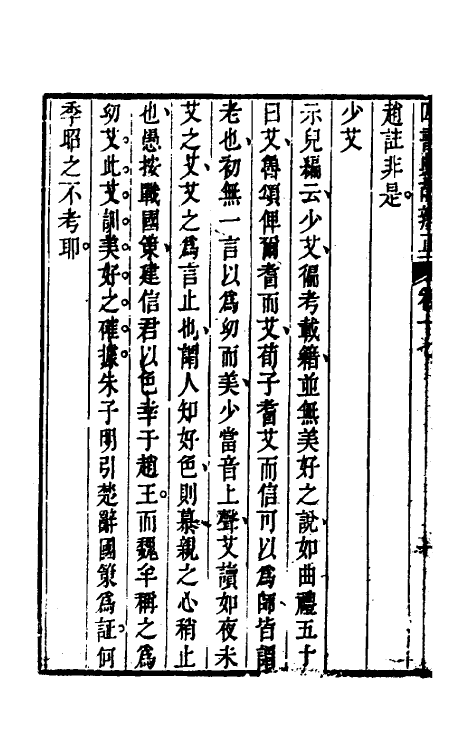 四書典故辨正 卷十九
趙註非是
少艾
示兒編云少艾徧考載籍並無美好之說如曲禮五十
曰艾魯頌俾爾耆而艾荀子耆艾而信可以為師皆謂
老也初無一言以為幼而美少當音上聲艾讀如夜未
艾之艾艾之為言止也謂人知好色則慕親之心稍止
也愚按戰國策建信君以色幸于趙王而魏牟稱之為
幼艾此艾訓美好之確據朱子明引楚辭國策為証何
季昭之不考耶